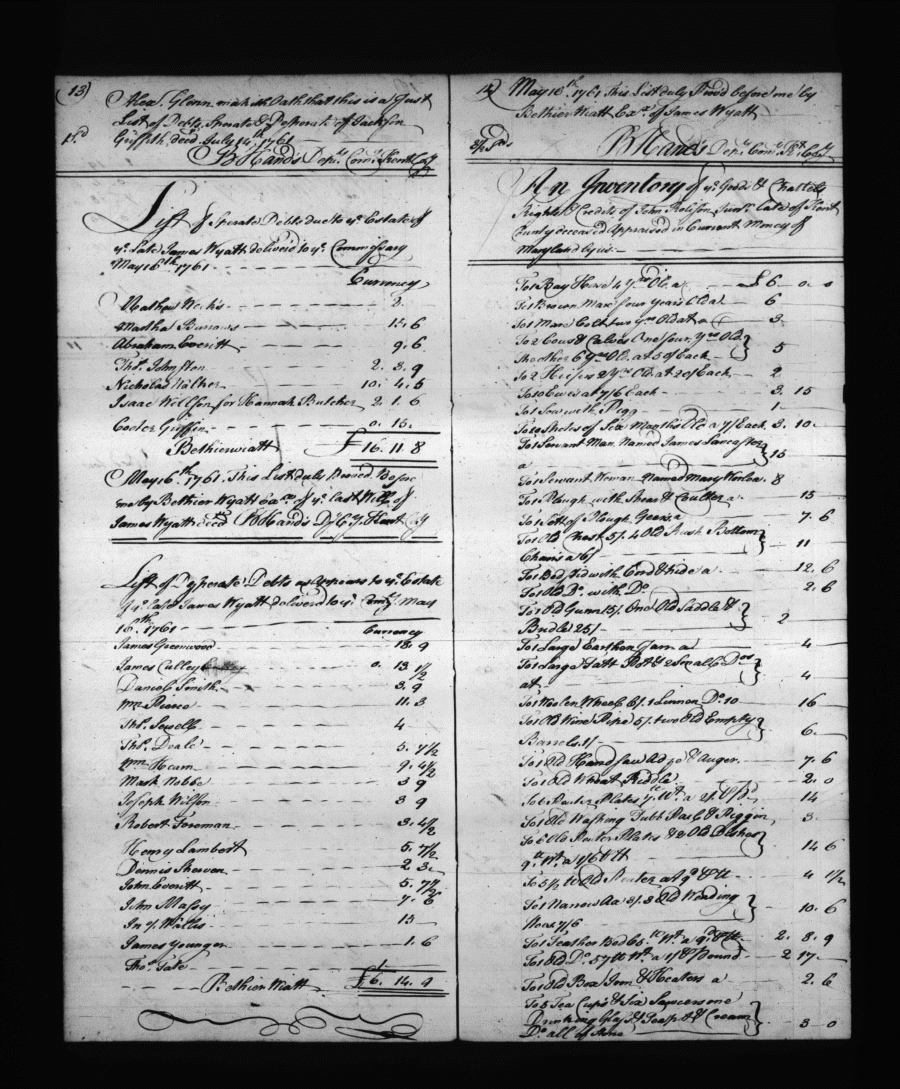 13)
Alex. Glenn maketh Oath that this is a Just
List of Debts, Sperate & Desperate of Jackson
Griffith decd. July 14th. 1761
B Hands Depy. Comy. Kent Coty
List of Sperate Debts due to ye. Estate of
ye. Late James Wyatt deliver'd to ye. Commissary
May 16th. 1761
Currency
Mathew Works 2.
Martha Burrows 15. 6
Abraham Everitt 9. 6
Thos. Johnston 2. 3. 9
Nicholas Walker 10. 4. 5
Isaac Willson for Hannah Butcher 2. 1. 6
Cooler Griffin 0. 15.
Bethier Wiatt £16. 11. 8
May 16th. 1761. This List duly Proved Before
me by Bethier Wyatt Exx. of ye. Last Will of
James Wyatt decd B Hands Dy. Cy. Kent Coty
List of Desperate Debts as appears to ye. Estate
of ye. Late James Wyatt deliverd to ye. Comy. May
16th. 1761 Currency
James Greenwood 18. 9
James Culley 0. 13 1/2
Daniel Smith 3. 9
Wm. Pierce 11. 3
Thos. Sewell 4
Thos. Deale 5. 7 1/2
Wm. Hearn 9. 4 1/2
Mark Nobbe 3 9
Joseph Wilson 3 9
Robert Foreman 3. 4 1/2
Henry Lambert 5. 7 1/2
Dennis 2 3
John Everitt 5. 7 1/2
John Massy 7. 6
Jn. y. Watts 13
James Younger 1. 6
Thos. Tate 1
Bethier Wiatt £6. 14. 9
14)
May 16th. 1761 This List duly Proved before me by
Bethier Wiatt Exx. of James Wyatt
B Hands Depy. Comy. Kt. Coty
An Inventory of ye. Goods & Chattels
Rights & Credits of John Rolison Junr. late of Kent
County deceased Appraised in Current Money of
Maryland by us
To 1 Bay Horse 4 yrs Old a £6 0 0
To 1 Brown Mare four years Old a 6
To 1 Mare Colt two yrs Old at a 3
To 2 Cows & Calves One four yrs Old
the other 6 yrs Old at 50/ Each 5
To 2 Heifers 2 yrs Old at 20/ Each 2
To 10 Ewes at 7/6 Each 3. 15
To 1 Sow with Pigg 1
To 10 Shotes of Six Months Old a 7/ Each 3. 10
To 1 Servant Man Named James Lancaster
a 15
To 1 Servant Woman Named Mary 8
To 1 Plough with Shear & Coulter a 15
To 1 Sett of Plough Geers a 7. 6
To 1 Old Chest 5/. 4 Old Rush Bottom
Chairs a 6/ 11
To 1 Bed sted with Cord & hide a 12. 6
To 1 Old Do. with Do. 2. 6
To 1 Old Gunn 15/ One Old Saddle &
Bridle 25/ 2
To 1 Large Earthen Jarr a 4
To 1 Large Fatt Pott & 2 Small Do.
at 4
To 1 Woolen Wheel 6/. 1 Linnen Do. 10 16
To 1 Old Wine Pipe 5/. two Old Empty
Barrels 1/ 6.
To 1 Old Hand Saw Auger 7. 6
To 1 Old Wheat Riddle 2. 0
To 6 Puter Plates 14
To 1 Old Washing Tubb & Piggin 3
To 6 Old Puter Plates & 3 Old Dishes
Wt. a 1/6 14 6
To 5 1/2 lb Old Puter at 9d 4 1/2
To 1 Narrow Ax 3/. 3 Old Weeding
Hoes 7/6 10. 6
To 1 Feather Bed 65 lb Wt. a 9d 2. 8. 9
To 1 Old Do. 57 lb Wt. a 1/ Pound 2 17
To 1 Old Box Iron & Heaters a 2. 6
To 5 Tea Cups & Six Saucers one
Drinking Glass & Cream
Do. all of 3 0